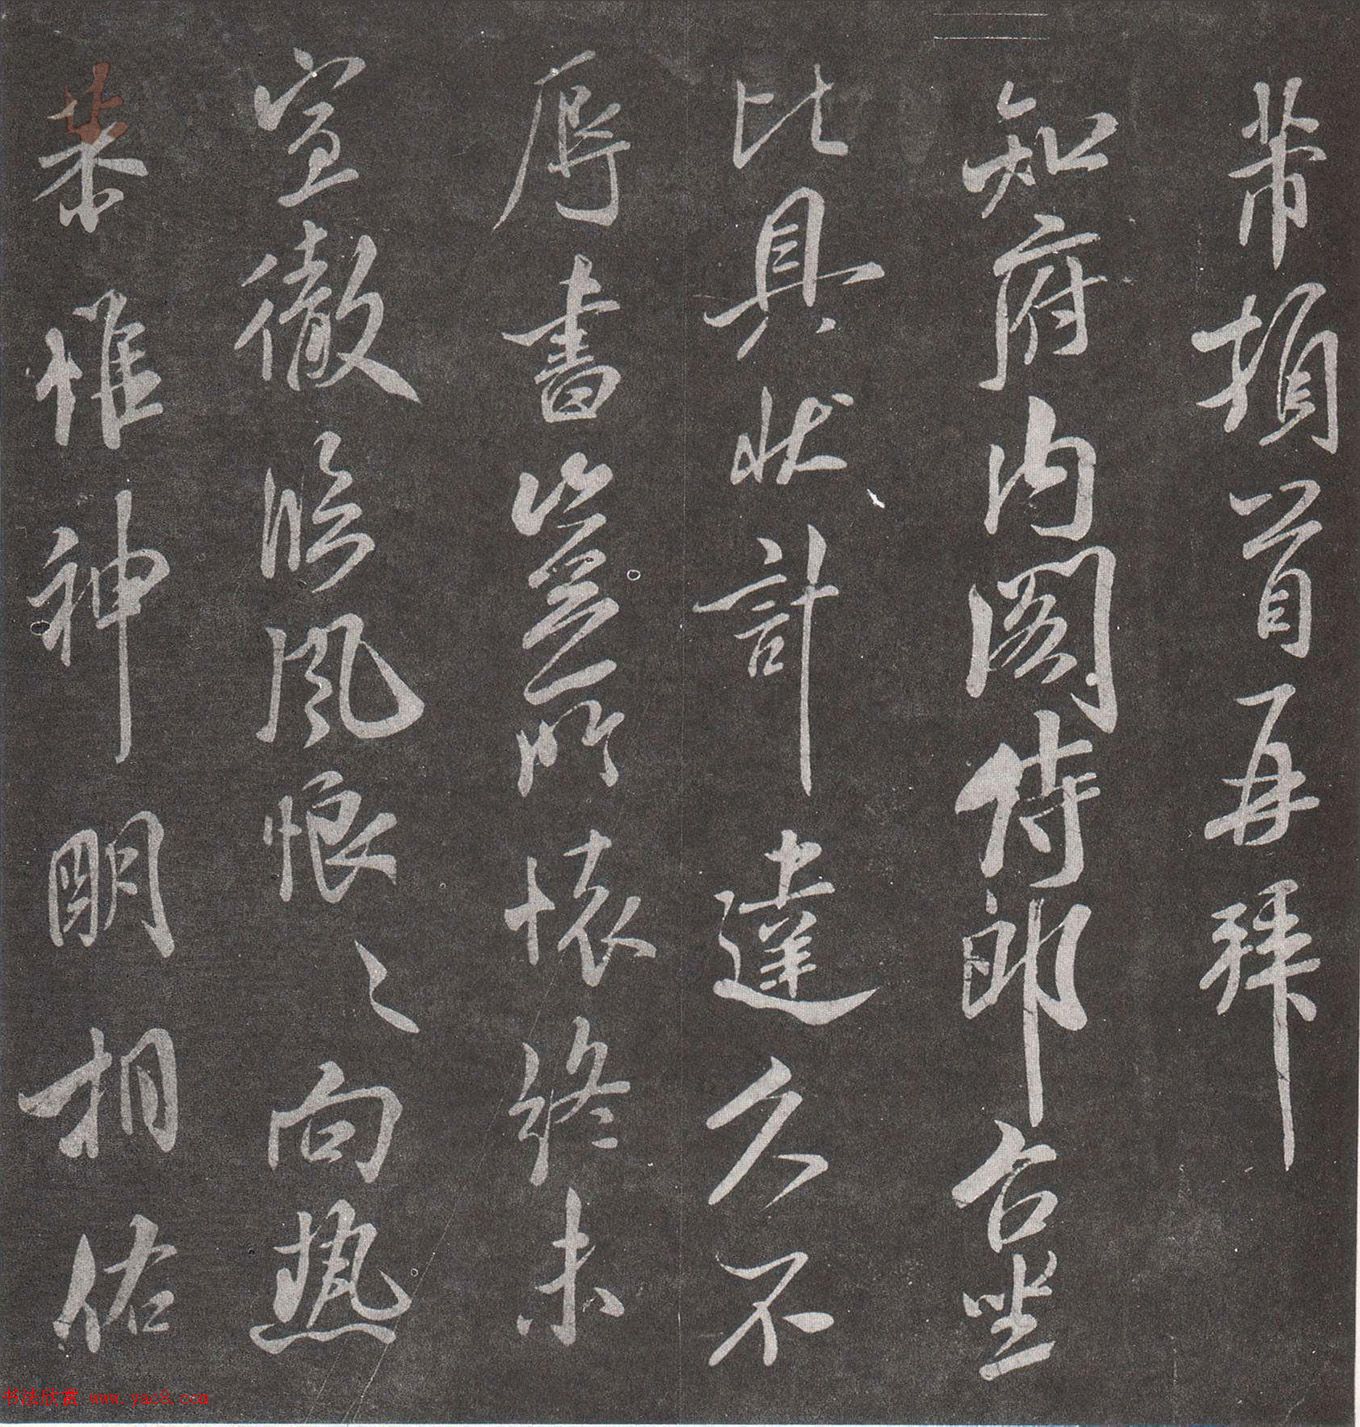 芾頓首再拜
知府内閣侍郎台坐
比具狀計達久不
辱書豈所懷終未
宣徹臨風恨々向熱
恭惟神明相佑
书法欣赏 www.yac8.com